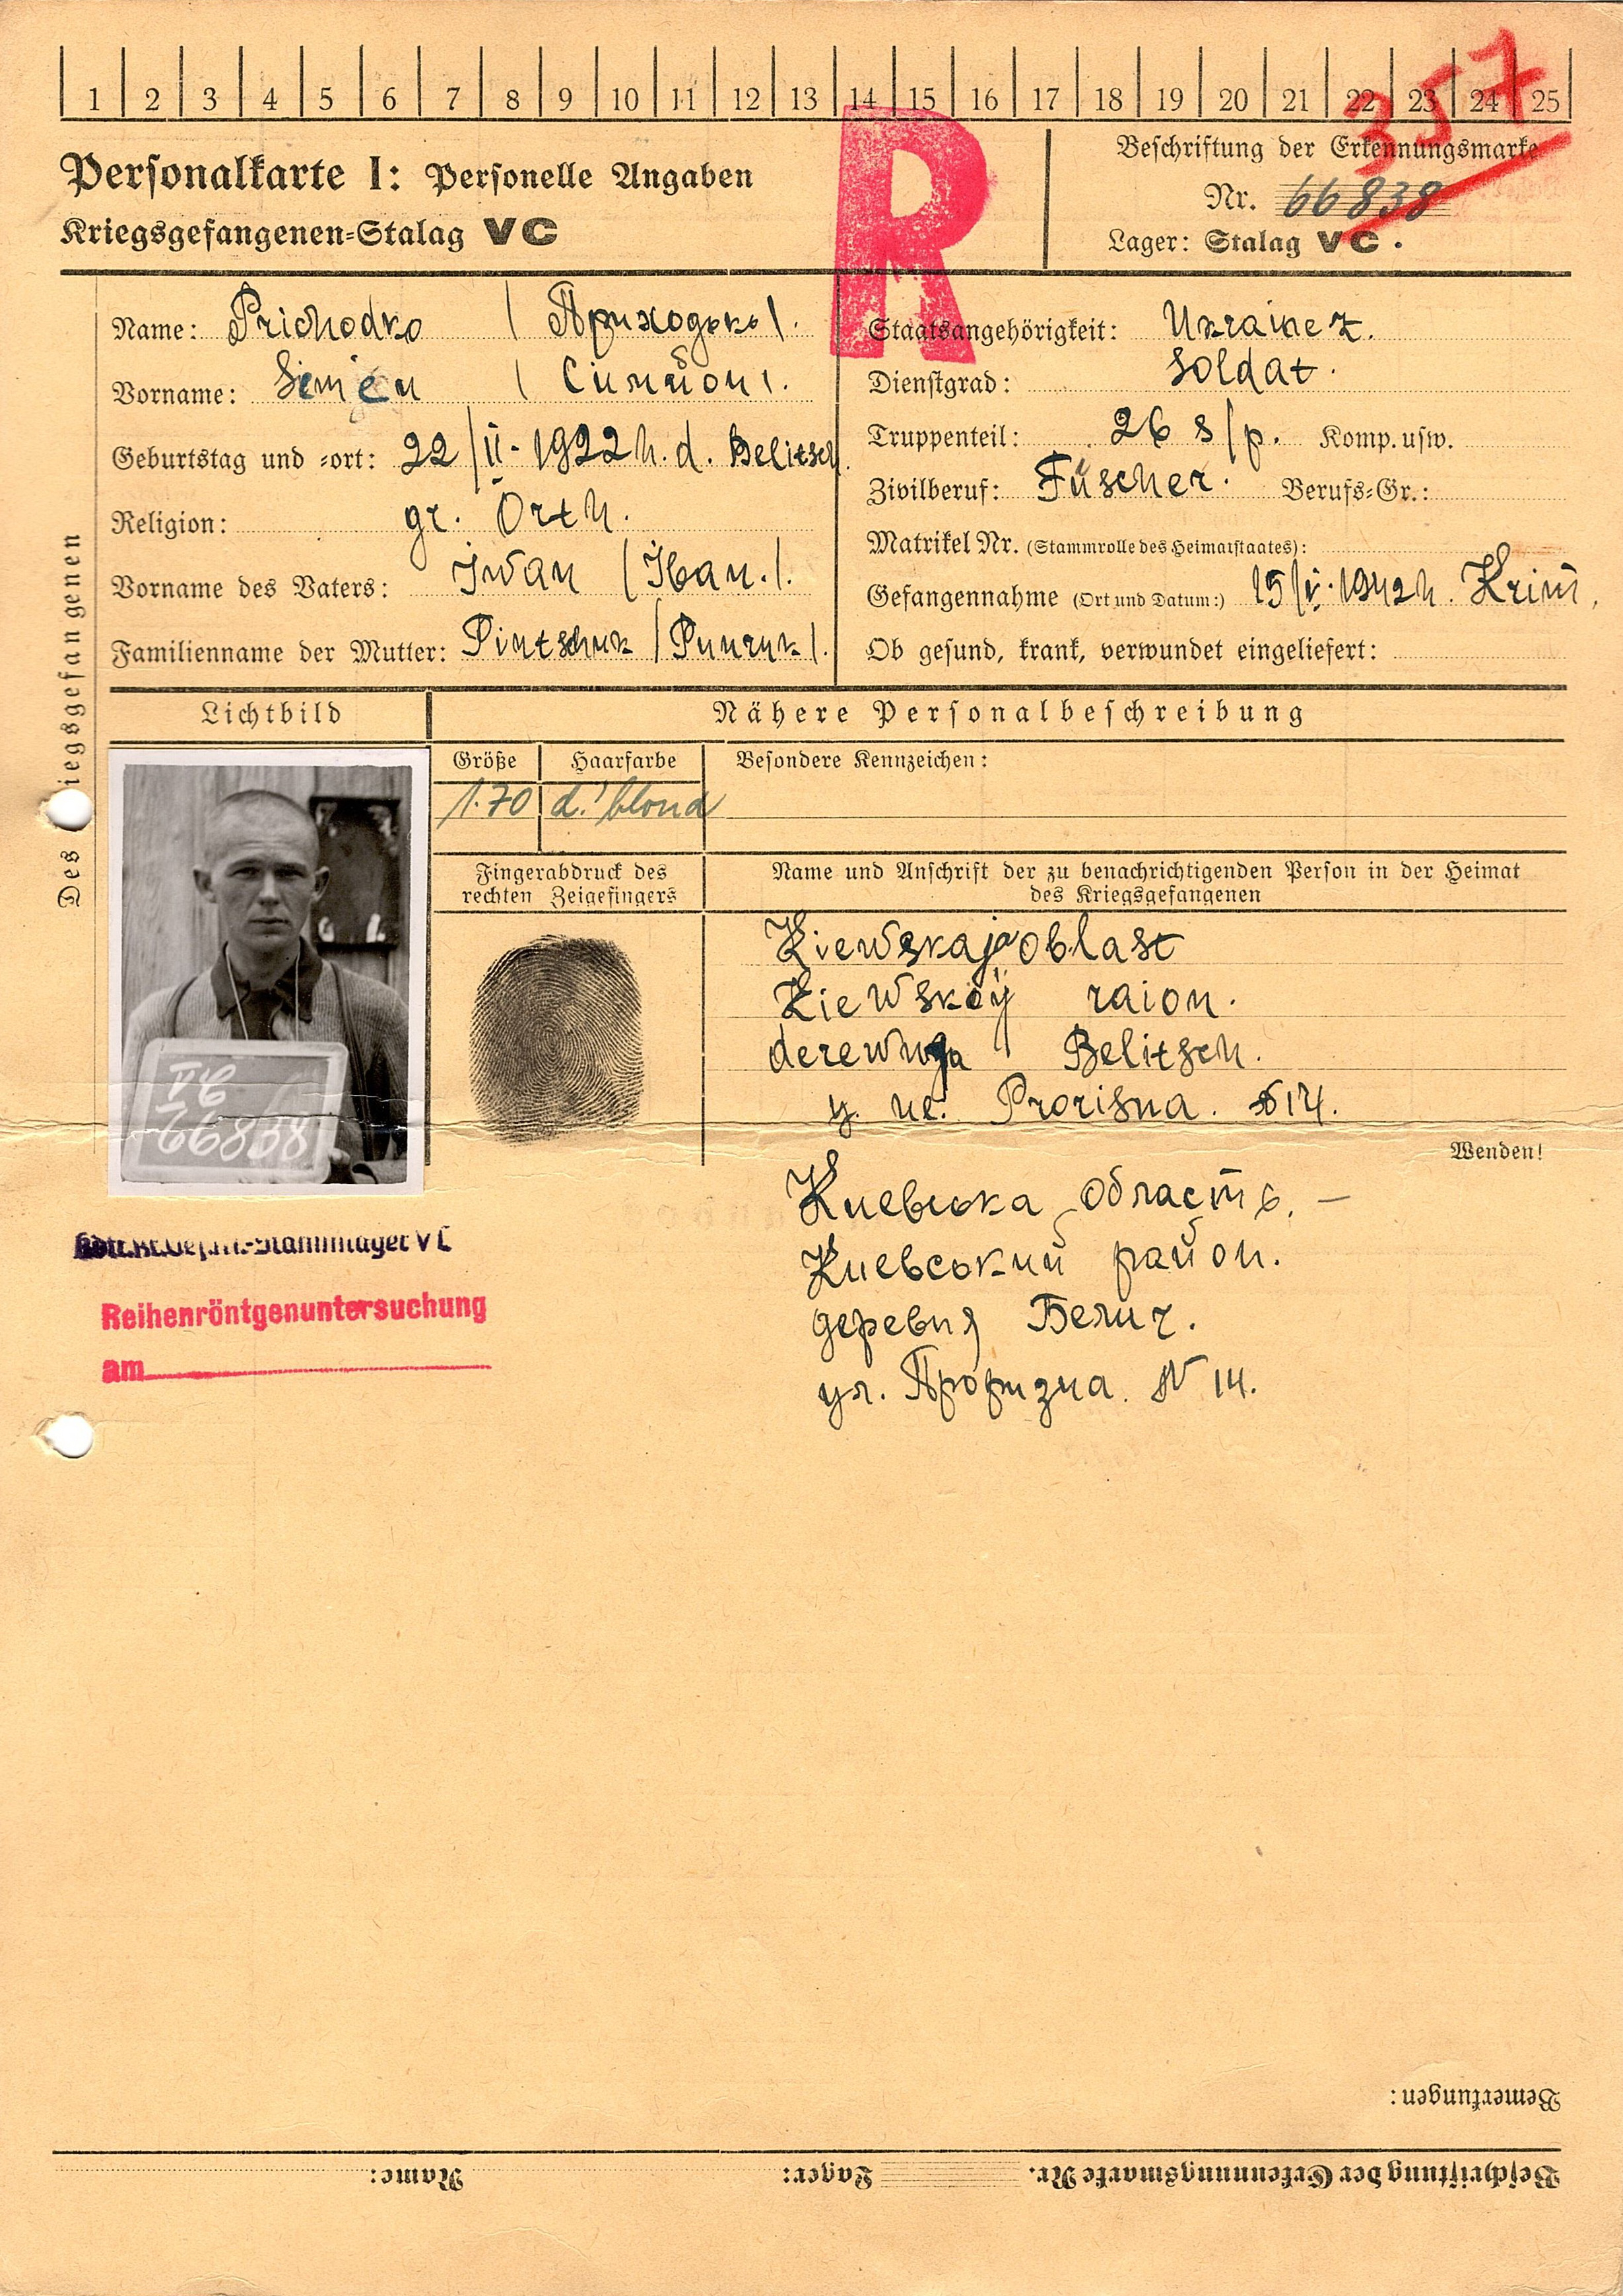 1 2 3 4 5 6 7 8 9 10 11 12 13 14 15 16 17 18 19 20 21 22 23 24 25
357
R
Personalkarte I: Personelle Angaben
Kriegsgefangenen-Stalag VC
Beschriftung der Erkennungsmarke
Nr. 66838
Lager: Stalag VC.
Des Kriegsgefangenen
Name: Prichodko (Приходько).
Vorname: Simën
Geburtstag und -ort: 22/II-1922 h. d. Belitsch.
Religion: gr. Orth.
Vorname des Vaters: Iwan (Іван.).
Familienname der Mutter: Pintschuk (Пинчук).
Staatsangehörigkeit: Ukrainez.
Dienstgrad: Soldat.
Truppenteil: 26 s/p. Komp. usw.
Zivilberuf: Füscher. Berufs-Gr.:
Matrikel Nr. (Stammrolle des Heimatstaates):
Gefangennahme (Ort und Datum:) 15/V.1942 h. Krim,
Ob gesund, krank, verwundet eingeliefert:
Lichtbild
Nähere Personalbeschreibung
Größe Haarfarbe Besondere Kennzeichen:
1.70 d.'blond
Fingerabdruck des rechten Zeigefingers
Name und Anschrift der zu benachrichtigenden Person in der Heimat
des Kriegsgefangenen
VC
66838
Kiewskaja oblast
Kiewskoÿ raion.
derewnja Belitsch.
Prorisna. N 14.
Wenden!
Киевська область. –
Киевський район.
деревня Белич.
ул. Проризна. N 14.
-Stammlager V C
Reihenröntgenuntersuchung
am
Bemerkungen:
Beschriftung der Erkennungsmarke Nr. Lager: Name: